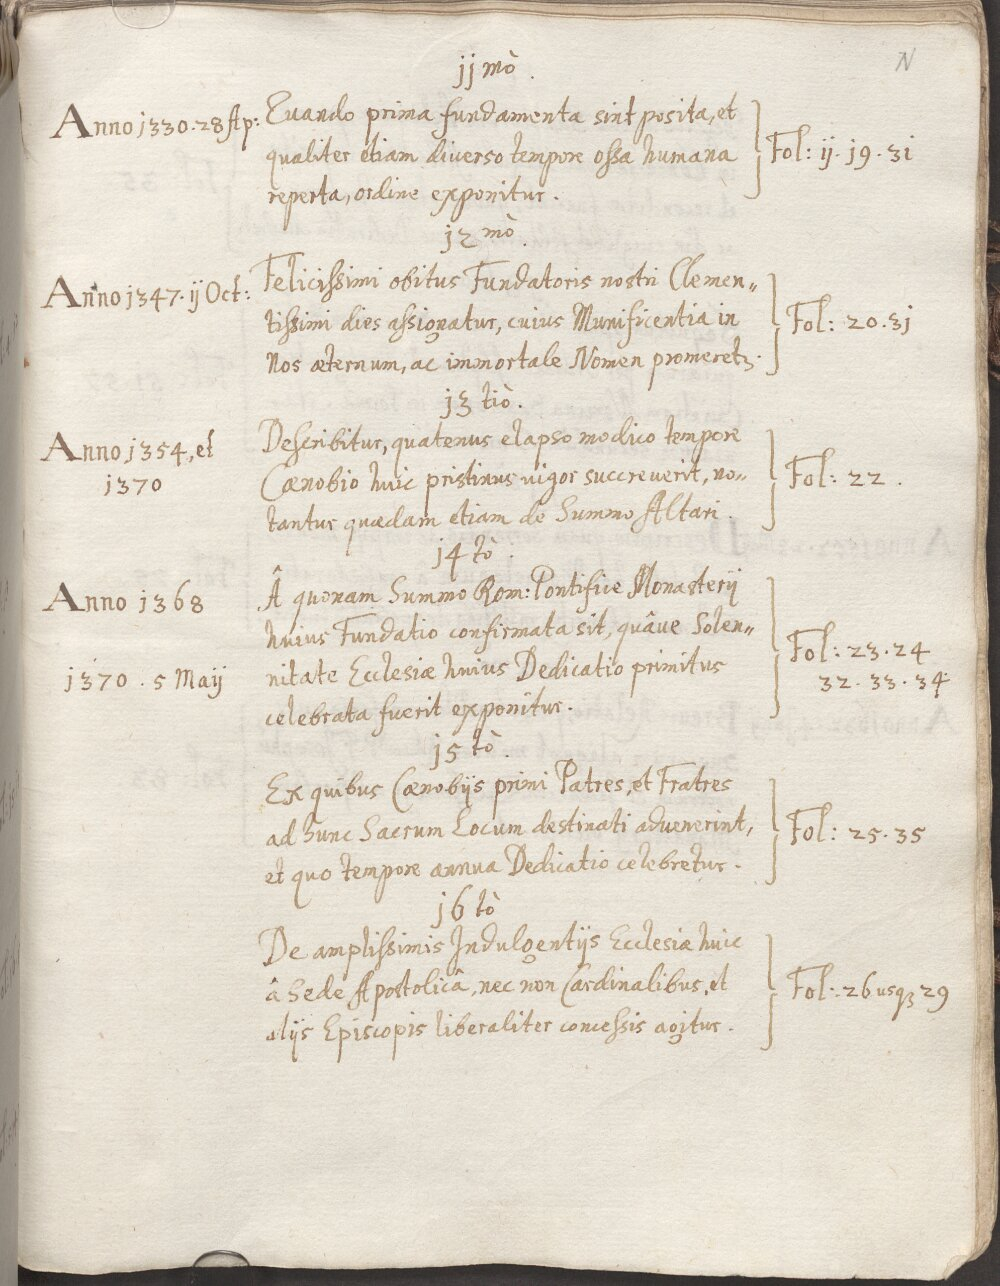 N
jj mò.
Anno j330. 28 Ap: Quando prima fundamenta sint posita, et
qualiter etiam diverso tempore ossa humana
reperta, ordine exponitur.
Fol: ij. j9. 3j
j2 mò.
Anno j347. ij Oct: Felicissimi obitus Fundatoris nostri Clemen„
tissimi dies assignatur, cuius Munificentia in
Nos æternum, ac immortale Nomen promeretꝫ.
Fol: 20. 3j
j3 tiò.
Anno j354, et
j370
Describitur, quatenus elapso modico tempore
Cænobio huic pristinus uigor succreverit, no„
tantur quædam etiam de Summo Altari.
Fol: 22.
j4 tò.
Anno j368
j370. 5 Maij
Â quonam Summo Rom: Pontifice Monasterij
huius Fundatio confirmata sit, quâue Solen„
nitate Ecclesiæ huius Dedicatio primitus
celebrata fuerit exponitur.
Fol: 23. 24
32. 33. 34
j5 tò.
Ex quibus Cænobijs primi Patres, et Fratres
ad hunc Sacrum Locum destinati advenerint,
et quo tempore annua Dedicatio celebretur.
Fol: 25. 35
j6 tò
De amplissimis Indulgentijs Ecclesiæ huic
â Sede Apostolicâ, nec non Cardinalibus, et
alijs Episcopis liberaliter concessis agitur.
Fol: 26 usqꝫ 29